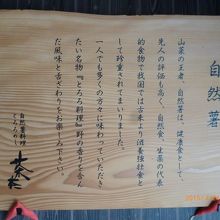 自然薯
山菜の王者、自然薯は、健康食として
先人の評価も高く、自然食、生薬の代表
的食物で我国では古来より滋養強壮食と
して珍重されてまいりました。
一人でも多くの方々に味わっていただき
たい名物『とろろ料理』野の香りを含ん
だ風味と舌ざわりをお楽しみ下さい。
自然薯料理
とろろのしろ